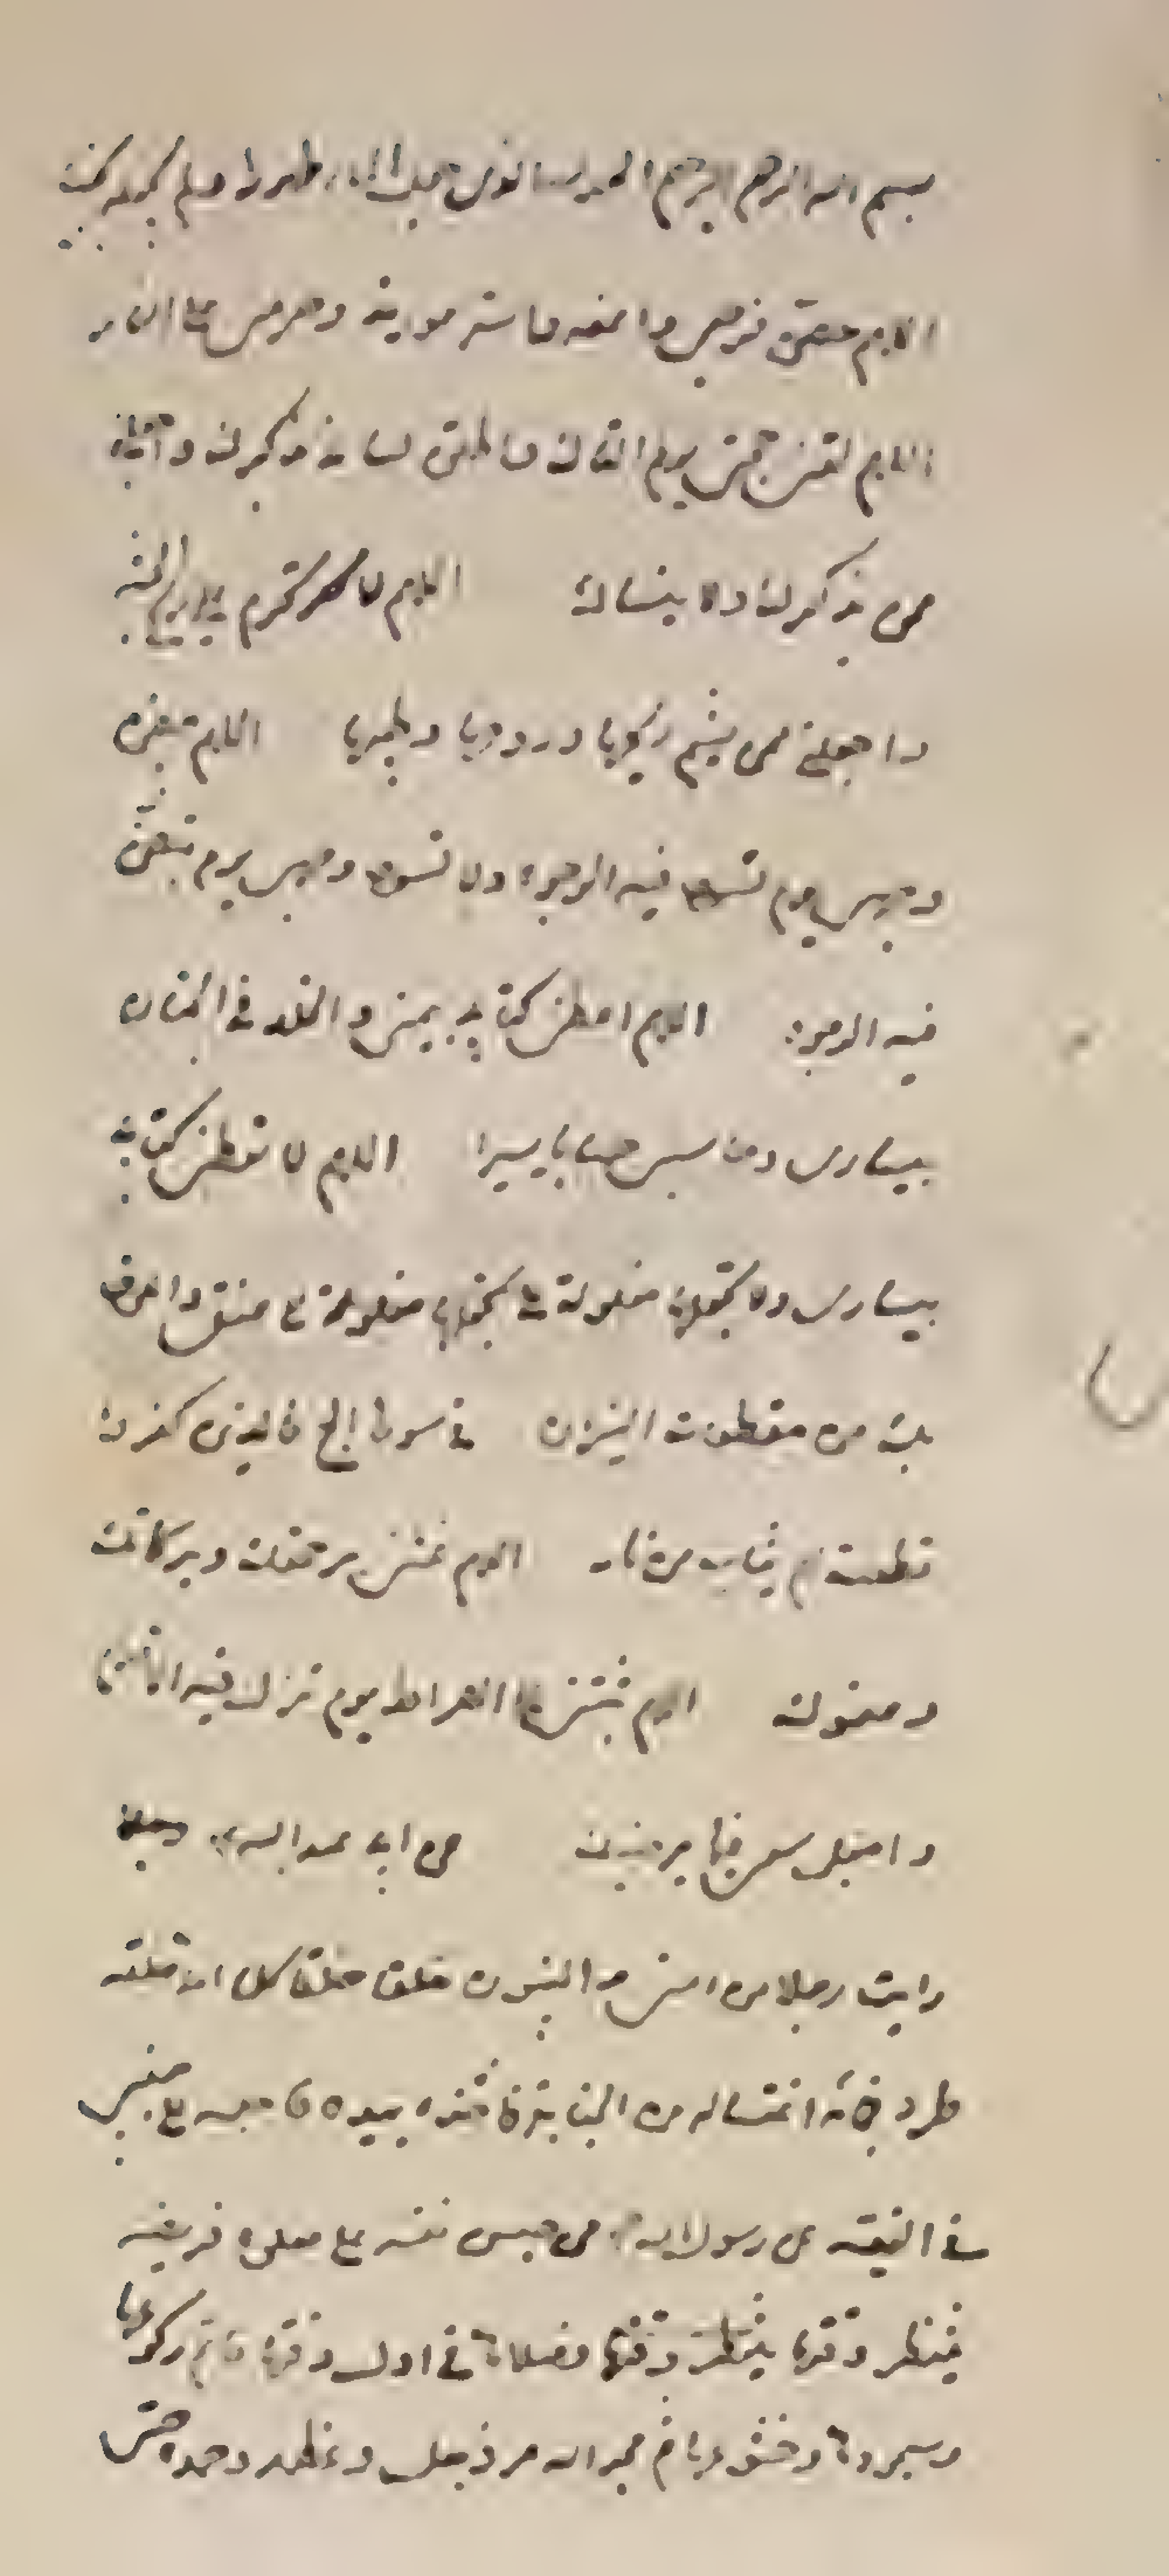 بسم الله الرحمن الرحيم الحمد لله الذي جعل الماء طهورا ولم يجعله نجسا
اللهم حصن فرجي واعفه واستر عورتي وحرمني على النار
اللهم لقني حجتي يوم القاك واطلق لساني بذكرك واجعلني
ممن يذكرك ولا ينساك اللهم لا تحرم علي ريح الجنة
واجعلني ممن يشم ريحها وروحها وطيبها اللهم بيض
وجهي يوم تسود فيه الوجوه ولا تسود وجهي يوم تبيض
فيه الوجوه اللهم اعطني كتابي بيميني والخلد في الجنان
بيساري وحاسبني حسابا يسيرا اللهم لا تعطني كتابي
بيساري ولا تجعلها مغلولة الى عنقي واعوذ
بك من مقطعات النيران فالذين كفروا
قطعت لهم ثياب من نار اللهم غشني برحمتك وبركاتك
وعفوك اللهم ثبتني على الصراط يوم تزل فيه الاقدام
واجعل سعيي فيما يرضيك عن ابي عبد الله
رايت رجلا من امتي والنبيون حلقا حلقا كلما اتى حلقة
طرد فجاءه اغتساله من الجنابة فاخذه بيده فاجلسه الى جنبي
في الفقيه عن رسول الله من حبس نفسه على صلوة فريضة
ينتظر وقتها فصلاها في اول وقتها فاتم ركوعها
وسجودها وخشوعها ثم مجد الله عز وجل وعظمه وحمده حتى